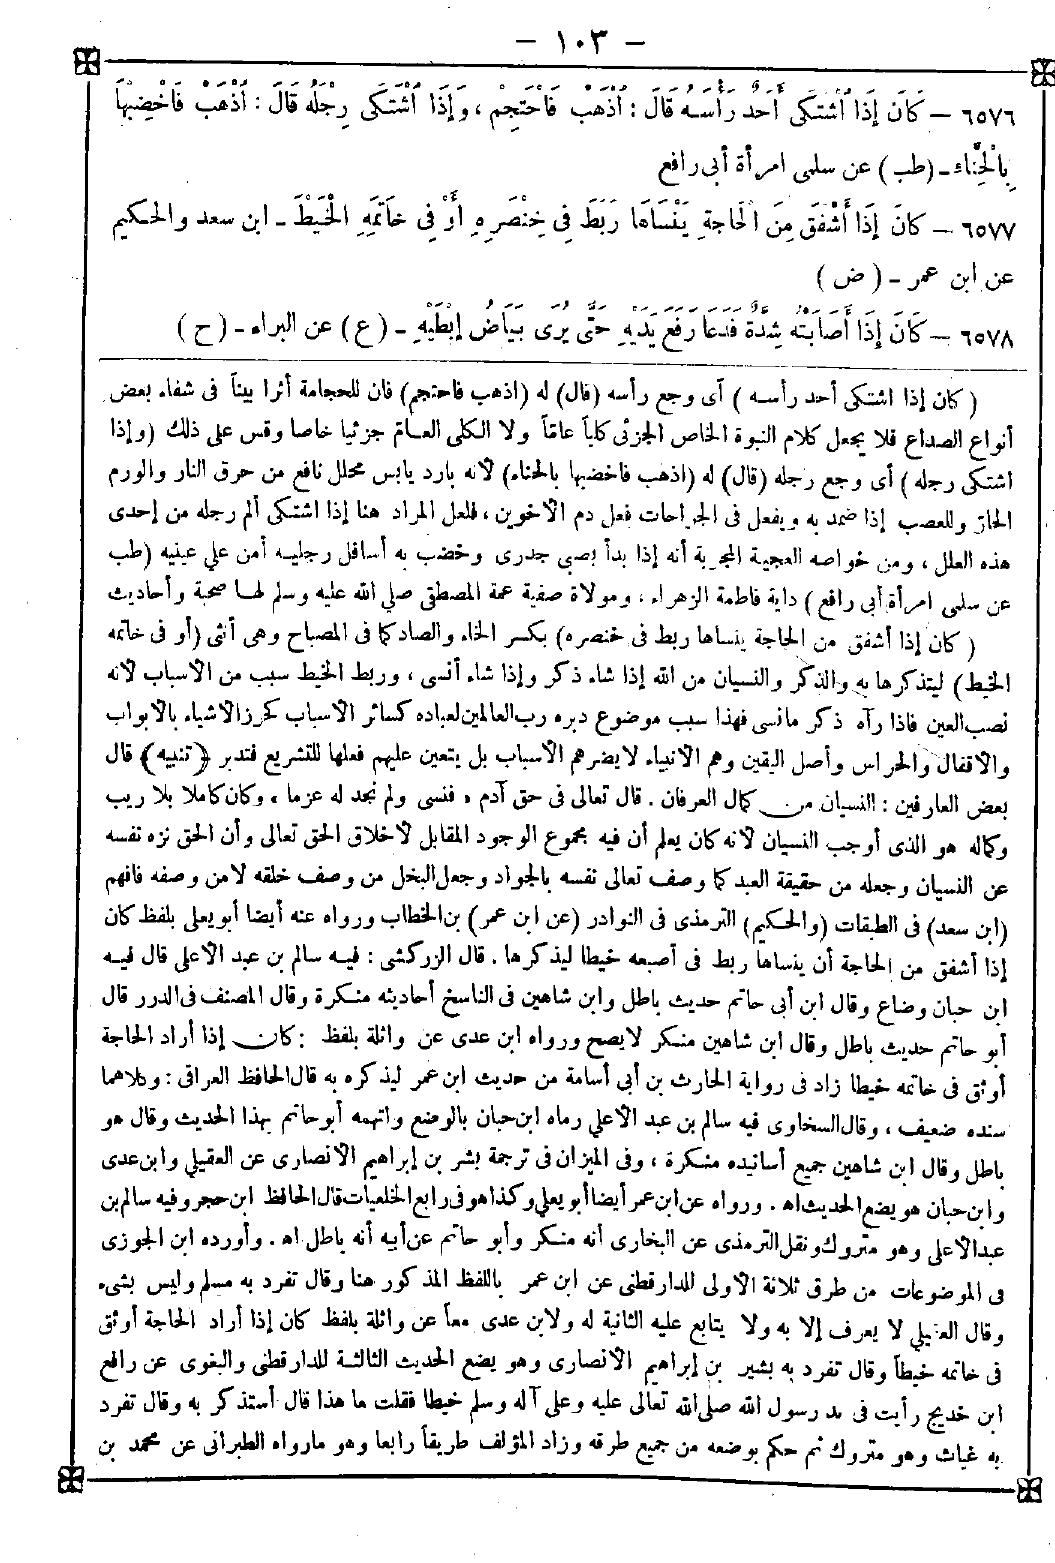 - ١٠٣ -
٦٥٧٦ – كَانَ إِذَا اشْتَكَى أَحَدٌ رَأْسَهُ قَالَ : اذْهَبْ فَاحْتَجِمْ ، وَإِذَا اشْتَكَى رِجْلَهُ قَالَ : اذْهَبْ فَاخْضِبْهَا
بِالْحِنَّاءِ - (طب) عن سلمى امرأة أبى رافع
٦٥٧٧ – كَانَ إِذَا أَشْفَقَ مِنَ الْحَاجَةِ يَنْسَاهَا رَبَطَ فِى خِنْصَرِهِ أَوْ فِى خَاتَمِهِ الْخَيْطَ - ابن سعد والحكيم
عن ابن عمر - (ض)
٦٥٧٨ – كَانَ إِذَا أَصَابَتْهُ شِدَّةٌ فَدَعَا رَفَعَ يَدَيْهِ حَتَّى يُرَى بَيَاضُ إِبْطَيْهِ - (ع) عن البراء - (ح)
(كان إذا اشتكى أحد رأسه) أى وجع رأسه (قال) له (اذهب فاحتجم) فان للحجامة أثرا بيناً فى شفاء بعض
أنواع الصداع فلا يجعل كلام النبوة الخاص الجزئى كلياً عاماً ولا الكلى العام جزئيا خاصا وقس على ذلك (وإذا
اشتكى رجله) أى وجع رجله (قال) له (اذهب فاخضبها بالحناء) لأنه بارد يابس محلل نافع من حرق النار والورم
الحار وللعصب إذا ضمد به ويفعل فى الجراحات فعل دم الأخوين ، فلعل المراد هنا إذا اشتكى ألم رجله من إحدى
هذه العلل ، ومن خواصه العجيبة المجربة أنه إذا بدأ بصبى جدرى وخضب به أسافل رجليه أمن على عينيه (طب
عن سلمى امرأة أبى رافع) داية فاطمة الزهراء ، ومولاة صفية عمة المصطفى صلى الله عليه وسلم لها صحبة وأحاديث
(كان إذا أشفق من الحاجة ينساها ربط فى خنصره) بكسر الخاء والصاد كما فى المصباح وهى أنثى (أو فى خاتمه
الخيط) ليتذكرها به والذكر والنسيان من الله إذا شاء ذكر وإذا شاء أنسى ، وربط الخيط سبب من الأسباب لأنه
نصب العين فاذا رآه ذكر مانسى فهذا سبب موضوع دبره رب العالمين لعباده كسائر الأسباب كحرز الأشياء بالأبواب
والأقفال والحراس وأصل اليقين وهم الأنبياء لايضرهم الأسباب بل يتعين عليهم فعلها للتشريع فتدبر ﴿تنبيه﴾ قال
بعض العارفين : النسيان من كمال العرفان . قال تعالى فى حق آدم « فنسى ولم نجد له عزما » وكان كاملا بلا ريب
وكماله هو الذى أوجب النسيان لأنه كان يعلم أن فيه مجموع الوجود المقابل لأخلاق الحق تعالى وأن الحق نزه نفسه
عن النسيان وجعله من حقيقة العبد كما وصف تعالى نفسه بالجواد وجعل البخل من وصف خلقه لامن وصفه فافهم
(ابن سعد) فى الطبقات (والحكيم) الترمذى فى النوادر (عن ابن عمر) بن الخطاب ورواه عنه أيضا أبو يعلى بلفظ كان
إذا أشفق من الحاجة أن ينساها ربط فى أصبعه خيطا ليذكرها . قال الزركشى : فيه سالم بن عبد الأعلى قال فيه
ابن حبان وضاع وقال ابن أبى حاتم حديث باطل وابن شاهين فى الناسخ أحاديثه منكرة وقال المصنف فى الدرر قال
أبو حاتم حديث باطل وقال ابن شاهين منكر لايصح ورواه ابن عدى عن واثلة بلفظ : كان إذا أراد الحاجة
أوثق فى خاتمه خيطا زاد فى رواية الحارث بن أبى أسامة من حديث ابن عمر ليذكره به قال الحافظ العراقى : وكلاهما
سنده ضعيف ، وقال السخاوى فيه سالم بن عبد الأعلى رماه ابن حبان بالوضع واتهمه أبو حاتم بهذا الحديث وقال هو
باطل وقال ابن شاهين جميع أسانيده منكرة ، وفى الميزان فى ترجمة بشر بن إبراهيم الأنصارى عن العقيلى وابن عدى
وابن حبان هو يضع الحديث اه . ورواه عن ابن عمر أيضا أبو يعلى وكذا هو فى رابع الخلعيات قال الحافظ ابن حجر وفيه سالم بن
عبد الأعلى وهو متروك ونقل الترمذى عن البخارى أنه منكر وأبو حاتم عن أبيه أنه باطل اه . وأورده ابن الجوزى
فى الموضوعات من طرق ثلاثة الأولى للدارقطنى عن ابن عمر باللفظ المذكور هنا وقال تفرد به مسلم وليس بشىء
وقال العقيلى لا يعرف إلا به ولا يتابع عليه الثانية له ولابن عدى معاً عن واثلة بلفظ كان إذا أراد الحاجة أوثق
فى خاتمه خيطاً وقال تفرد به بشير بن إبراهيم الأنصارى وهو يضع الحديث الثالثة للدارقطنى والبغوى عن رافع
ابن خديج رأيت فى يد رسول الله صلى الله تعالى عليه وعلى آله وسلم خيطا فقلت ما هذا قال أستذكر به وقال تفرد
به غياث وهو متروك ثم حكم بوضعه من جميع طرقه وزاد المؤلف طريقاً رابعا وهو مارواه الطبرانى عن محمد بن